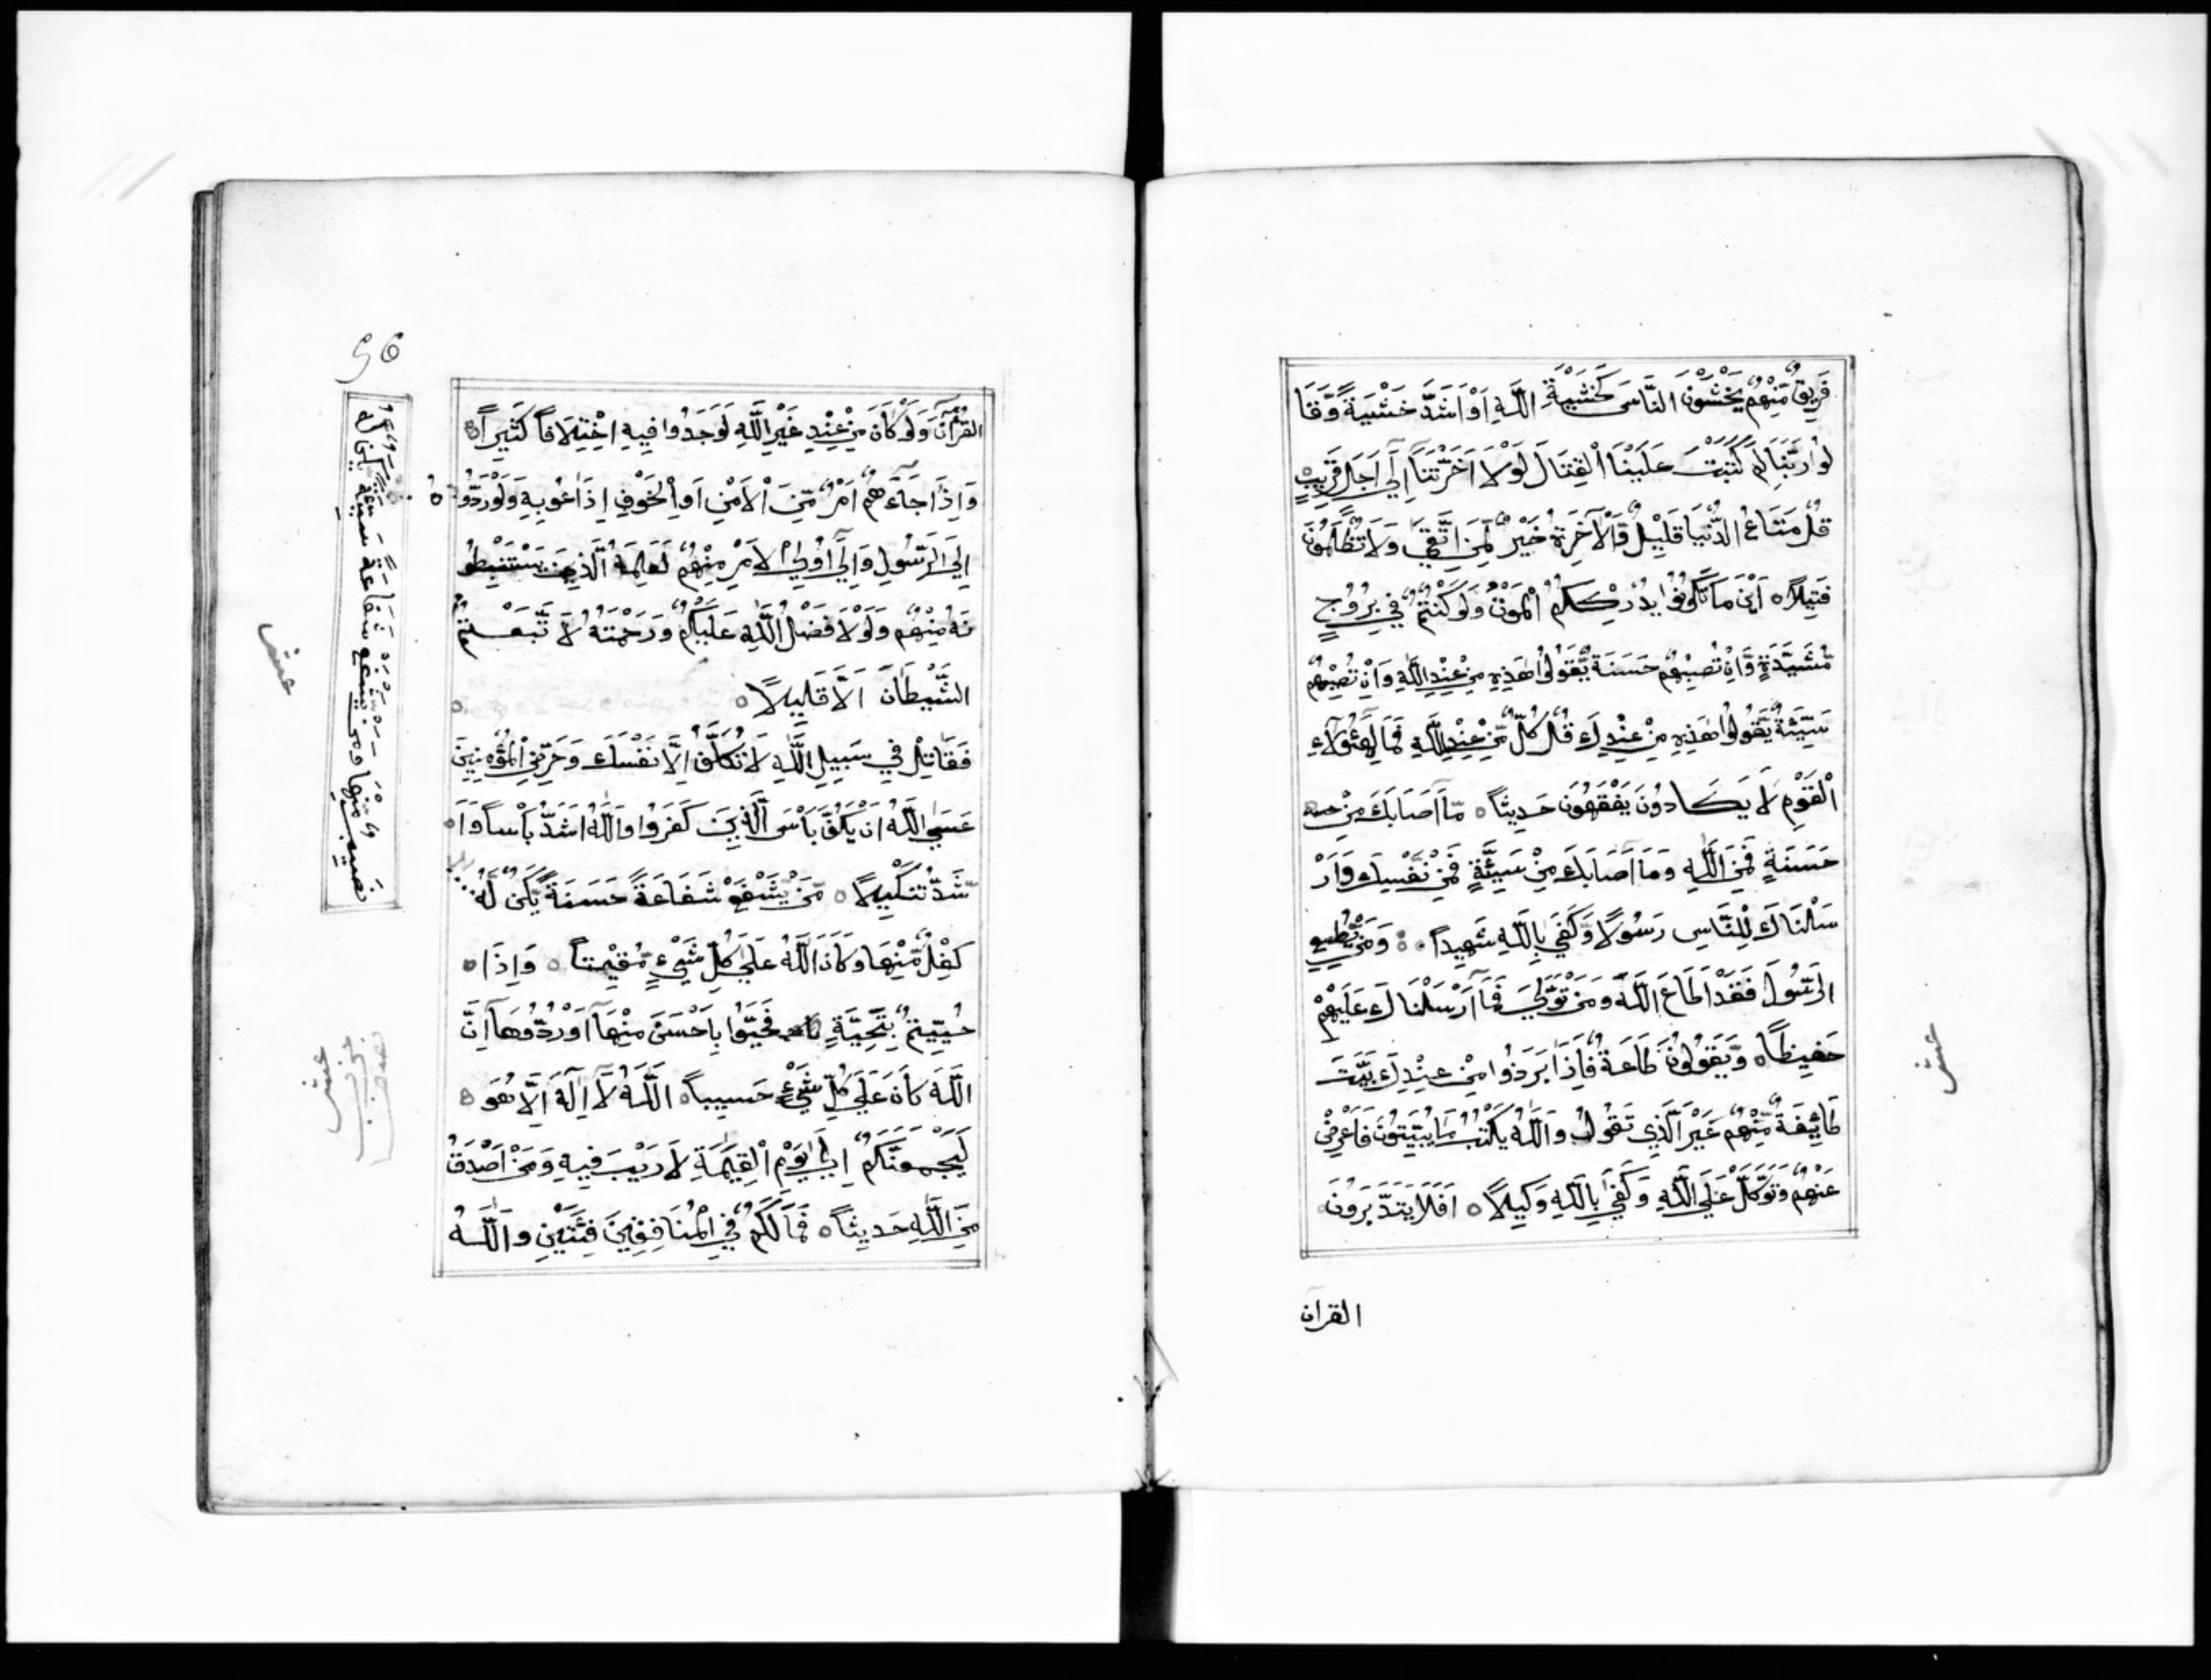 فَرِيقٌ مِّنْهُمْ يَخْشَوْنَ النَّاسَ كَخَشْيَةِ اللَّهِ اَوْ اَشَدَّ خَشْيَةً وَّقَا
لُوا رَبَّنَا لِمَ كَتَبْتَ عَلَيْنَا الْقِتَالَ لَوْلَا اَخَّرْتَنَا اِلَى اَجَلٍ قَرِيبٍ
قُلْ مَتَاعُ الدُّنْيَا قَلِيلٌ وَّالْاٰخِرَةُ خَيْرٌ لِّمَنِ اتَّقَى وَلَا تُظْلَمُونَ
فَتِيلًا ه اَيْنَ مَا تَكُونُوا يُدْرِكْكُمُ الْمَوْتُ وَلَوْ كُنْتُمْ فِي بُرُوجٍ
مُّشَيَّدَةٍ وَّاِنْ تُصِبْهُمْ حَسَنَةٌ يَّقُولُوا هَذِهِ مِنْ عِنْدِ اللَّهِ وَاِنْ تُصِبْهُمْ
سَيِّئَةٌ يَّقُولُوا هَذِهِ مِنْ عِنْدِكَ قُلْ كُلٌّ مِّنْ عِنْدِ اللَّهِ فَمَا لِهٰؤُلَآءِ
الْقَوْمِ لَا يَكَادُونَ يَفْقَهُونَ حَدِيثًا ه مَّآ اَصَابَكَ مِنْ
حَسَنَةٍ فَمِنَ اللَّهِ وَمَآ اَصَابَكَ مِنْ سَيِّئَةٍ فَمِنْ نَّفْسِكَ وَاَرْ
سَلْنَاكَ لِلنَّاسِ رَسُولًا وَّكَفَى بِاللَّهِ شَهِيدًا ه وَمَنْ يُّطِيعِ
الرَّسُولَ فَقَدْ اَطَاعَ اللَّهَ وَمَنْ تَوَلَّى فَمَآ اَرْسَلْنَاكَ عَلَيْهِمْ
حَفِيظًا ه وَّيَقُولُونَ طَاعَةٌ فَاِذَا بَرَزُوا مِنْ عِنْدِكَ بَيَّتَ
طَائِفَةٌ مِّنْهُمْ غَيْرَ الَّذِي تَقُولُ وَاللَّهُ يَكْتُبُ مَا يُبَيِّتُونَ فَاَعْرِضْ
عَنْهُمْ وَتَوَكَّلْ عَلَى اللَّهِ وَكَفَى بِاللَّهِ وَكِيلًا ه اَفَلَا يَتَدَبَّرُونَ
القران
عشر
القُرْآنَ وَلَوْ كَانَ مِنْ عِنْدِ غَيْرِ اللَّهِ لَوَجَدُوا فِيهِ اخْتِلَافًا كَثِيرًا ه
وَاِذَا جَآءَهُمْ اَمْرٌ مِّنَ الْاَمْنِ اَوِ الْخَوْفِ اِذَاعُو بِهِ وَلَوْ رَدُّوهُ
اِلَى الرَّسُولِ وَاِلَى اُولِي الْاَمْرِ مِنْهُمْ لَعَلِمَهُ الَّذِينَ يَسْتَنْبِطُو
نَهُ مِنْهُمْ وَلَوْلَا فَضْلُ اللَّهِ عَلَيْكُمْ وَرَحْمَتُهُ لَا تَّبَعْتُمُ
الشَّيْطَانَ اَلَّا قَلِيلًا ه
فَقَاتِلْ فِي سَبِيلِ اللَّهِ لَا تُكَلَّفُ اِلَّا نَفْسَكَ وَحَرِّضِ الْمُؤْمِنِينَ
عَسَى اللَّهُ اَنْ يَكُفَّ بَاْسَ الَّذِينَ كَفَرُوا وَاللَّهُ اَشَدُّ بَاْسًا وَا
شَدُّ تَنْكِيلًا ه مَّنْ يَّشْفَعْ شَفَاعَةً حَسَنَةً يَّكُنْ لَّهُ
كِفْلٌ مِّنْهَا وَكَانَ اللَّهُ عَلَى كُلِّ شَيْءٍ مُّقِيْتًا ه وَاِذَا
حُيِّيتُمْ بِتَحِيَّةٍ فَحَيُّوا بِاَحْسَنَ مِنْهَآ اَوْ رُدُّوهَآ اِنَّ
اللَّهَ كَانَ عَلَى كُلِّ شَيْءٍ حَسِيبًا ه اللَّهُ لَآ اِلٰهَ اِلَّا هُوَ
لَيَجْمَعَنَّكُمْ اِلَى يَوْمِ الْقِيٰمَةِ لَا رَيْبَ فِيهِ وَمَنْ اَصْدَقُ
مِنَ اللَّهِ حَدِيثًا ه فَمَا لَكُمْ فِي الْمُنَافِقِينَ فِئَتَيْنِ وَاللَّهُ
نَصِيبٌ مِّنْهَا وَمَنْ يَشْفَعْ شَفَاعَةً سَيِّئَةً يَّكُنْ لَهُ
عشر
عشر